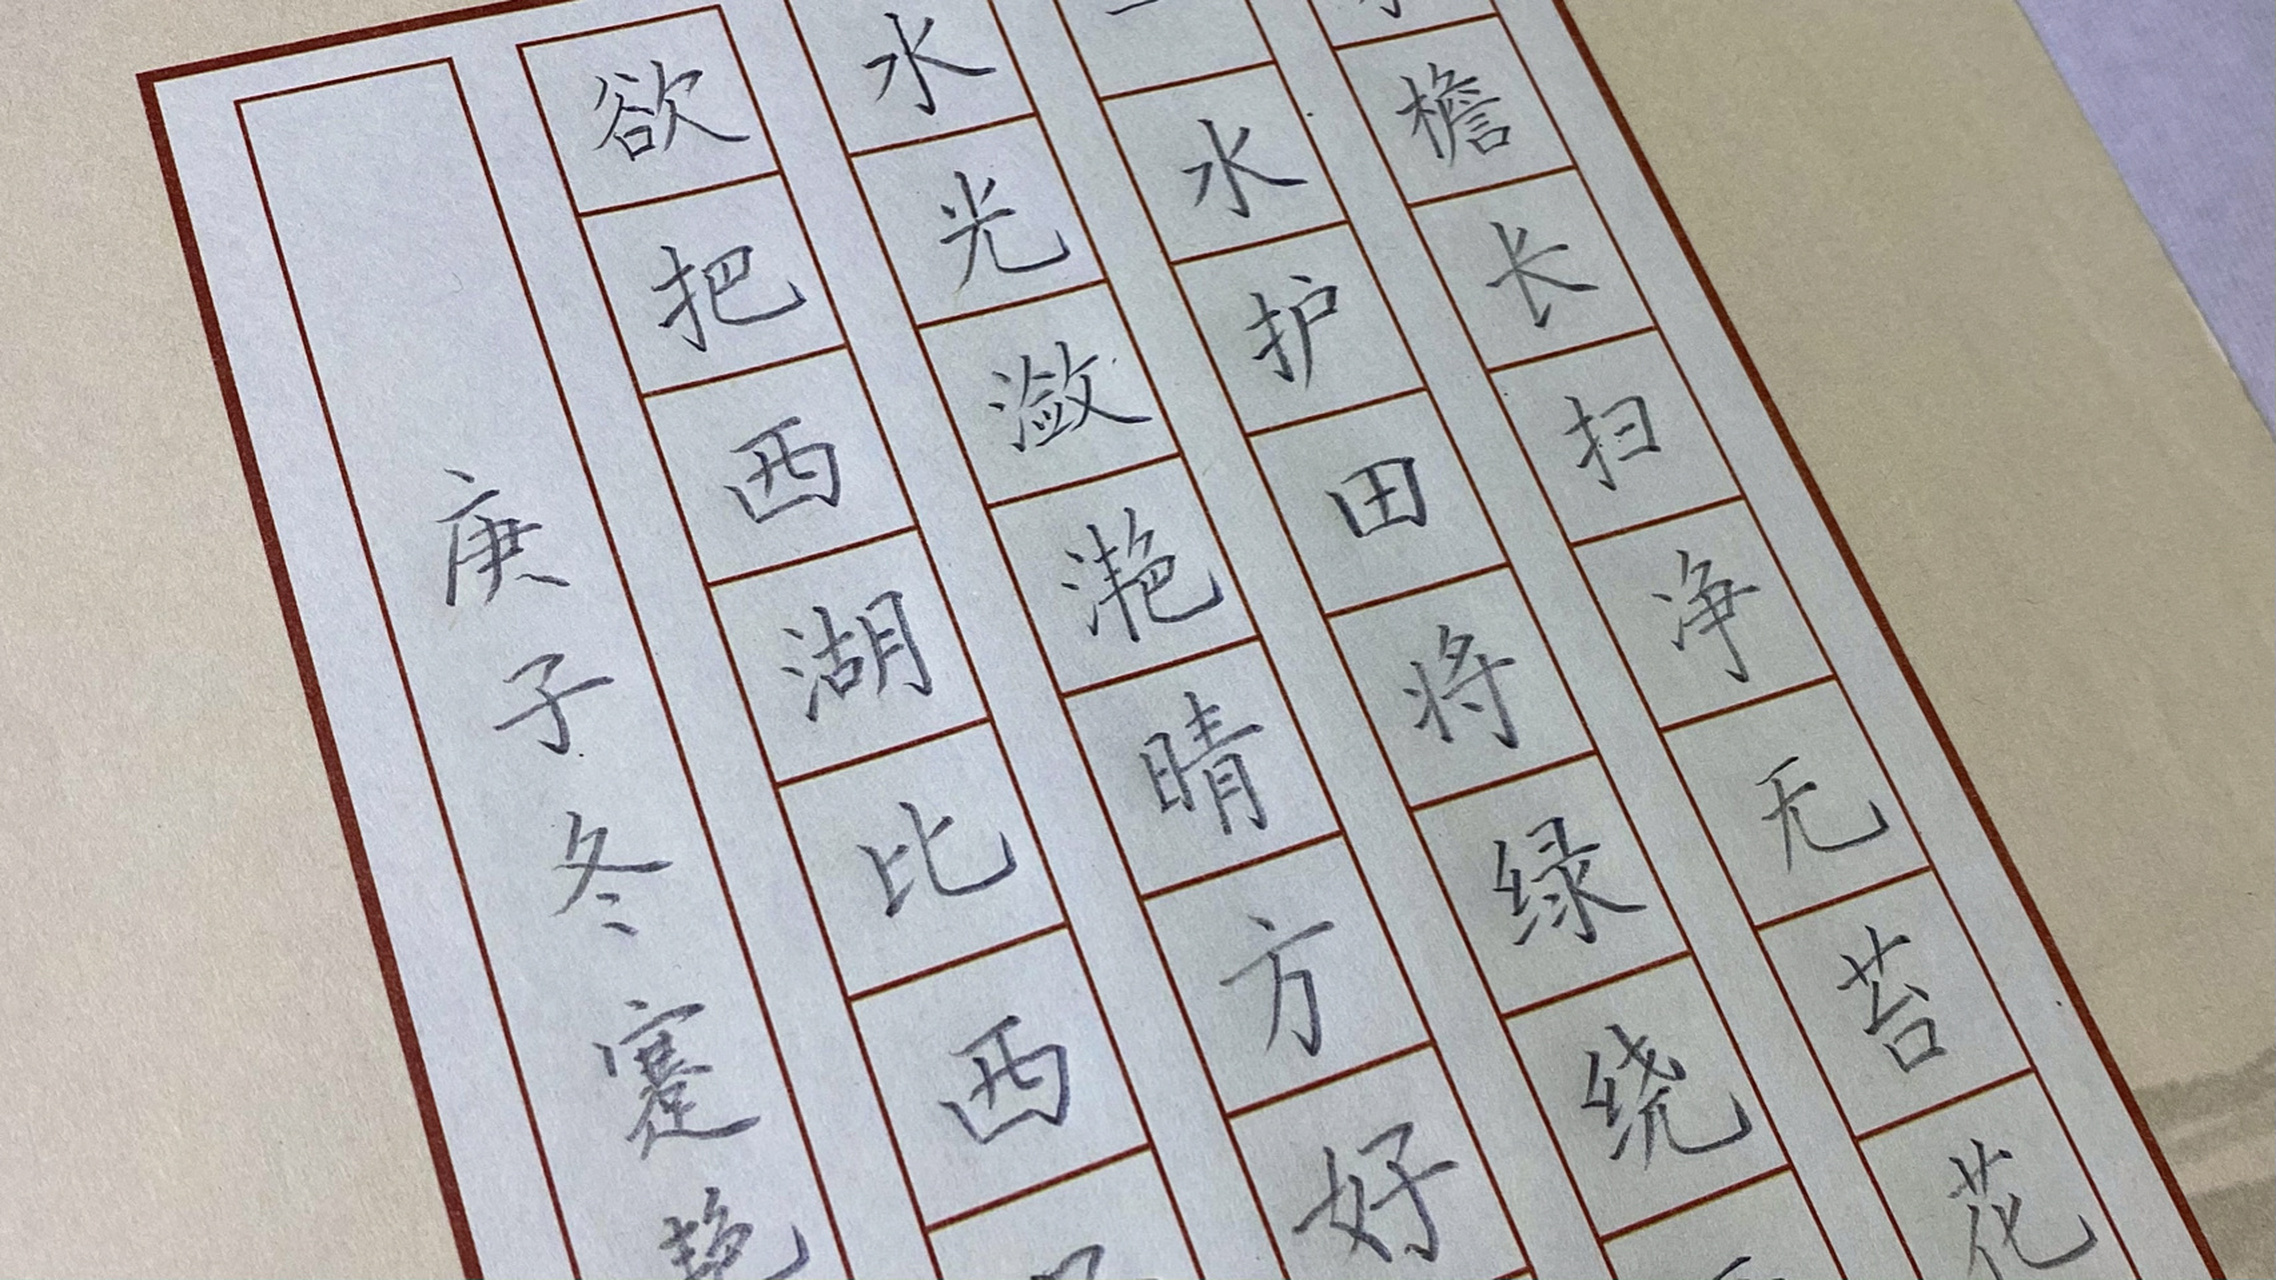 檐长扫净无苔花
一水护田将绿绕
水光潋滟晴方好
欲把西湖比西
庚子冬蹇艳